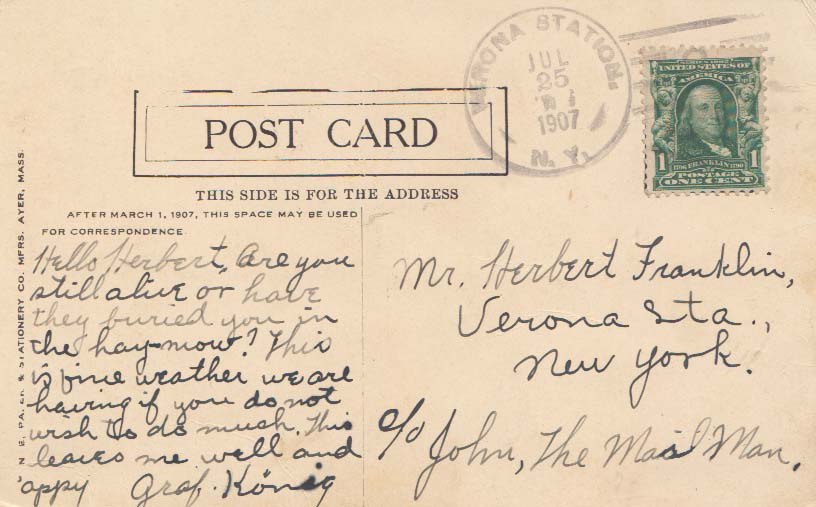 VERONA STATION.
JUL
25
1907
N. Y.
SERIES 1902
UNITED STATES OF
AMERICA
1 1706 FRANKLIN 1790 1
POSTAGE
ONE CENT
POST CARD
THIS SIDE IS FOR THE ADDRESS
AFTER MARCH 1, 1907, THIS SPACE MAY BE USED
FOR CORRESPONDENCE
N. E. PAPER & STATIONERY CO. MFRS. AYER, MASS.
Hello Herbert, Are you
still alive or have
they buried you in
the hay-mow? This
is fine weather we are
having if you do not
wish to do much. This
leaves me well and
'appy Graf. König
Mr. Herbert Franklin,
Verona Sta.,
New York.
c/o John, The Mail Man.